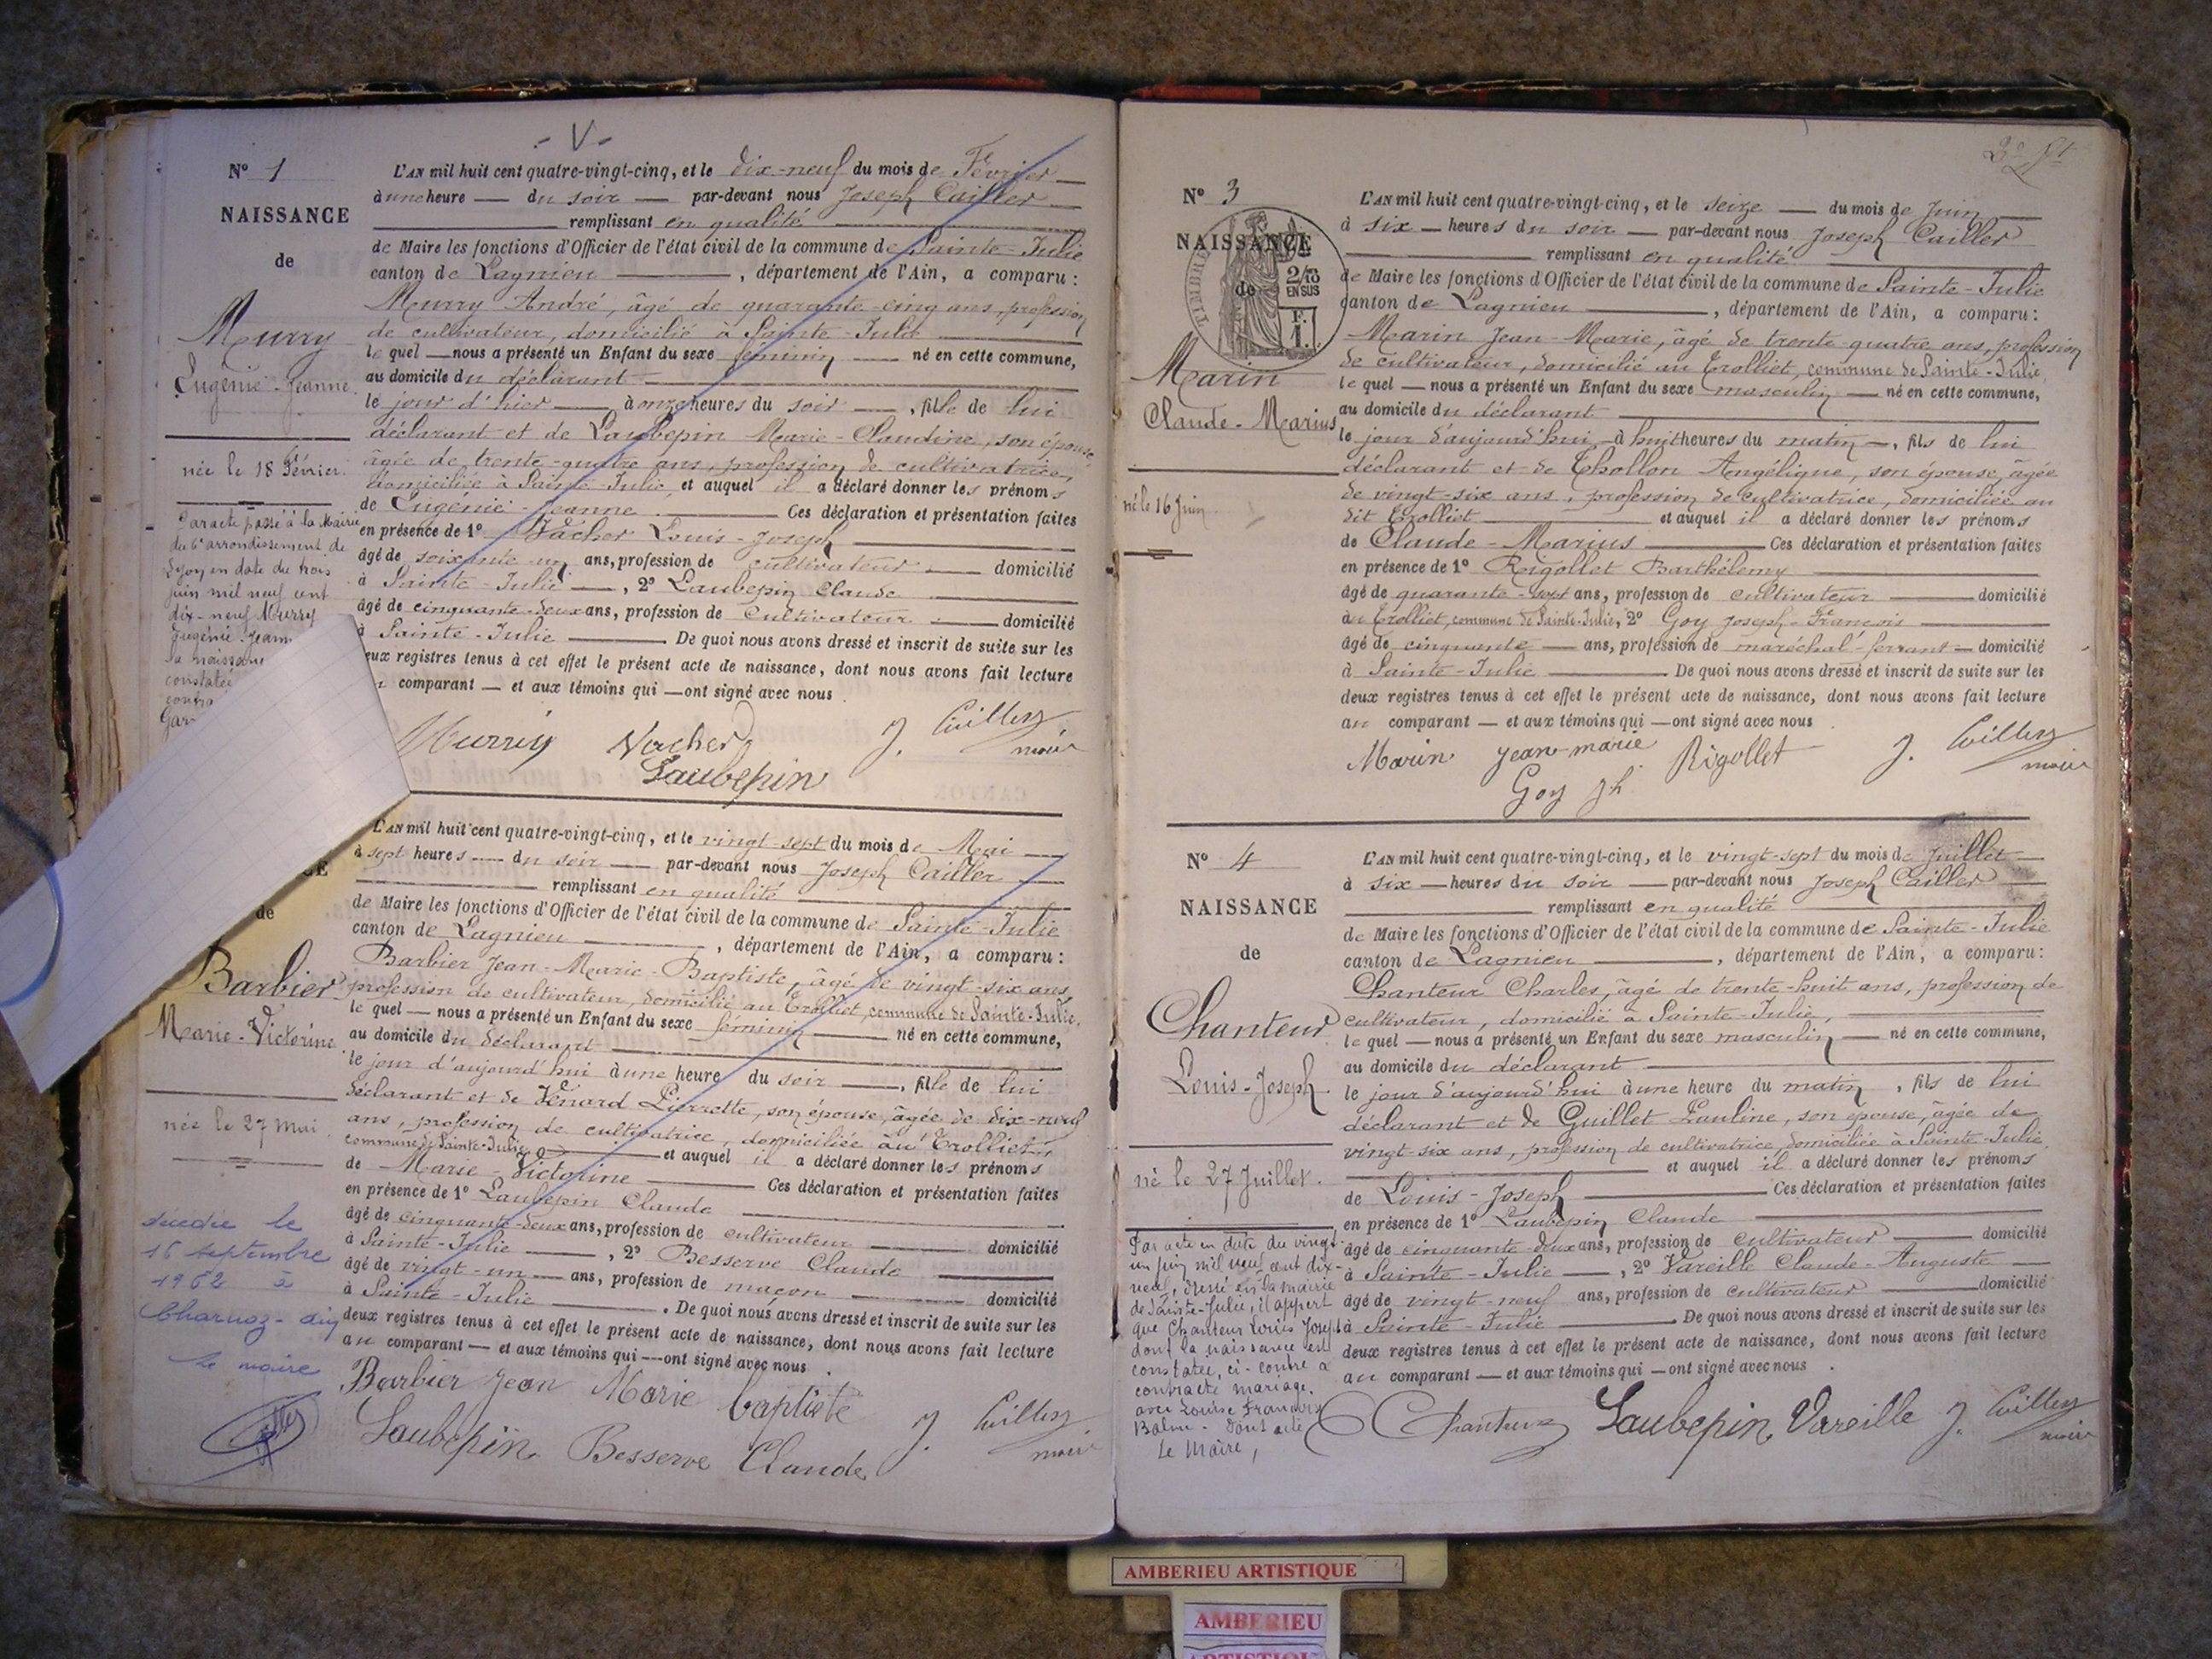 - V -
N° 1
NAISSANCE
de
Murry
Eugénie-Jeanne
née le 18 Février.
Par acte passé à la Mairie
du 6e arrondissement de
Lyon en date du trois
juin mil neuf cent
dix-neuf Murry
Eugénie-Jeann
la naissan
constatée
contra
Gar
L'AN mil huit cent quatre-vingt-cinq, et le dix-neuf du mois de Février
à une heure — du soir — par-devant nous Joseph Cailler
remplissant en qualité
de Maire les fonctions d'Officier de l'état civil de la commune de Sainte-Julie
canton de Lagnieu — , département de l'Ain, a comparu :
Murry André, âgé de quarante-cinq ans, profession
de cultivateur, domicilié à Sainte-Julie
le quel — nous a présenté un Enfant du sexe féminin — né en cette commune,
au domicile du déclarant
le jour d'hier — à onze heures du soir — , fille de lui
déclarant et de Laubepin Marie-Claudine, son épouse
âgée de trente-quatre ans, profession de cultivatrice,
domiciliée à Sainte-Julie, et auquel il a déclaré donner les prénoms
de Eugénie-Jeanne — Ces déclaration et présentation faites
en présence de 1° Vacher Louis-Joseph
âgé de soixante-un ans, profession de cultivateur — domicilié
à Sainte-Julie — , 2° Laubepin Claude
âgé de cinquante-deux ans, profession de Cultivateur — domicilié
à Sainte-Julie — De quoi nous avons dressé et inscrit de suite sur les
eux registres tenus à cet effet le présent acte de naissance, dont nous avons fait lecture
u comparant — et aux témoins qui — ont signé avec nous .
Murry Vacher J. Cailler
maire
Laubepin
CE
de
Barbier
Marie-Victorine
née le 27 Mai
décédée le
16 septembre
1962 à
Charnoz-ain
le maire
L'AN mil huit cent quatre-vingt-cinq, et le vingt-sept du mois de Mai
à sept heures — du soir — par-devant nous Joseph Cailler
remplissant en qualité
de Maire les fonctions d'Officier de l'état civil de la commune de Sainte-Julie
canton de Lagnieu — , département de l'Ain, a comparu :
Barbier Jean-Marie-Baptiste, âgé de vingt-six ans,
profession de cultivateur, domicilié au Trolliet, commune de Sainte-Julie,
le quel — nous a présenté un Enfant du sexe féminin — né en cette commune,
au domicile du déclarant
le jour d'aujourd'hui à une heure du soir — , fille de lui
déclarant et de Venard Pierrette, son épouse, âgée de dix-neuf
ans, profession de cultivatrice, domiciliée au Trolliet,
commune de Sainte-Julie — et auquel il a déclaré donner les prénoms
de Marie-Victorine — Ces déclaration et présentation faites
en présence de 1° Laubepin Claude
âgé de cinquante-deux ans, profession de cultivateur — domicilié
à Sainte-Julie — , 2° Besserve Claude
âgé de vingt-un — ans, profession de maçon — domicilié
à Sainte-Julie — . De quoi nous avons dressé et inscrit de suite sur les
deux registres tenus à cet effet le présent acte de naissance, dont nous avons fait lecture
au comparant — et aux témoins qui — ont signé avec nous .
Barbier Jean Marie baptiste
Laubepin Besserve Claude J. Cailler
maire
N° 3
NAISSANCE
de
TIMBRE
2/10
EN SUS
F.
1.
Marin
Claude-Marius
né le 16 Juin
L'AN mil huit cent quatre-vingt-cinq, et le seize — du mois de Juin
à six — heures du soir — par-devant nous Joseph Cailler
remplissant en qualité
de Maire les fonctions d'Officier de l'état civil de la commune de Sainte-Julie
canton de Lagnieu — , département de l'Ain, a comparu :
Marin Jean-Marie, âgé de trente-quatre ans, profession
de cultivateur, domicilié au Trolliet, commune de Sainte-Julie,
le quel — nous a présenté un Enfant du sexe masculin — né en cette commune,
au domicile du déclarant
le jour d'aujourd'hui — à huit heures du matin — , fils de lui
déclarant et de Thollon Angélique, son épouse, âgée
de vingt-six ans, profession de cultivatrice, domiciliée au
dit Trolliet — et auquel il a déclaré donner les prénoms
de Claude-Marius — Ces déclaration et présentation faites
en présence de 1° Rigollet Barthélemy
âgé de quarante- ans, profession de cultivateur — domicilié
au Trolliet, commune de Sainte-Julie, 2° Goy Joseph-François
âgé de cinquante — ans, profession de maréchal-ferrant — domicilié
à Sainte-Julie — De quoi nous avons dressé et inscrit de suite sur les
deux registres tenus à cet effet le présent acte de naissance, dont nous avons fait lecture
au comparant — et aux témoins qui — ont signé avec nous .
Marin jean-marie Rigollet J. Cailler
maire
Goy Jh
N° 4
NAISSANCE
de
Chanteur
Louis-Joseph
né le 27 Juillet.
Par acte en date du vingt-
un juin mil neuf cent dix-
neuf, dressé en la mairie
de Sainte-Julie, il appert
que Chanteur Louis Joseph
dont la naissance est
constatée, ci-contre a
contracté mariage,
avec Louise Françoise
Balme. Dont acte
Le Maire,
L'AN mil huit cent quatre-vingt-cinq, et le vingt-sept du mois de Juillet
à six — heures du soir — par-devant nous Joseph Cailler
remplissant en qualité
de Maire les fonctions d'Officier de l'état civil de la commune de Sainte-Julie
canton de Lagnieu — , département de l'Ain, a comparu :
Chanteur Charles, âgé de trente-huit ans, profession de
cultivateur, domicilié à Sainte-Julie,
le quel — nous a présenté un Enfant du sexe masculin — né en cette commune,
au domicile du déclarant
le jour d'aujourd'hui à une heure du matin , fils de lui
déclarant et de Guillet Pauline, son épouse, âgée de
vingt-six ans, profession de cultivatrice, domiciliée à Sainte-Julie,
et auquel il a déclaré donner les prénoms
de Louis-Joseph — Ces déclaration et présentation faites
en présence de 1° Laubepin Claude
âgé de cinquante-deux ans, profession de Cultivateur — domicilié
à Sainte-Julie — , 2° Vareille Claude-Auguste
âgé de vingt-neuf ans, profession de cultivateur — domicilié
à Sainte-Julie — De quoi nous avons dressé et inscrit de suite sur les
deux registres tenus à cet effet le présent acte de naissance, dont nous avons fait lecture
au comparant — et aux témoins qui — ont signé avec nous .
Chanteur Laubepin Vareille J. Cailler
maire
AMBERIEU ARTISTIQUE
AMBERIEU
ARTISTIQU